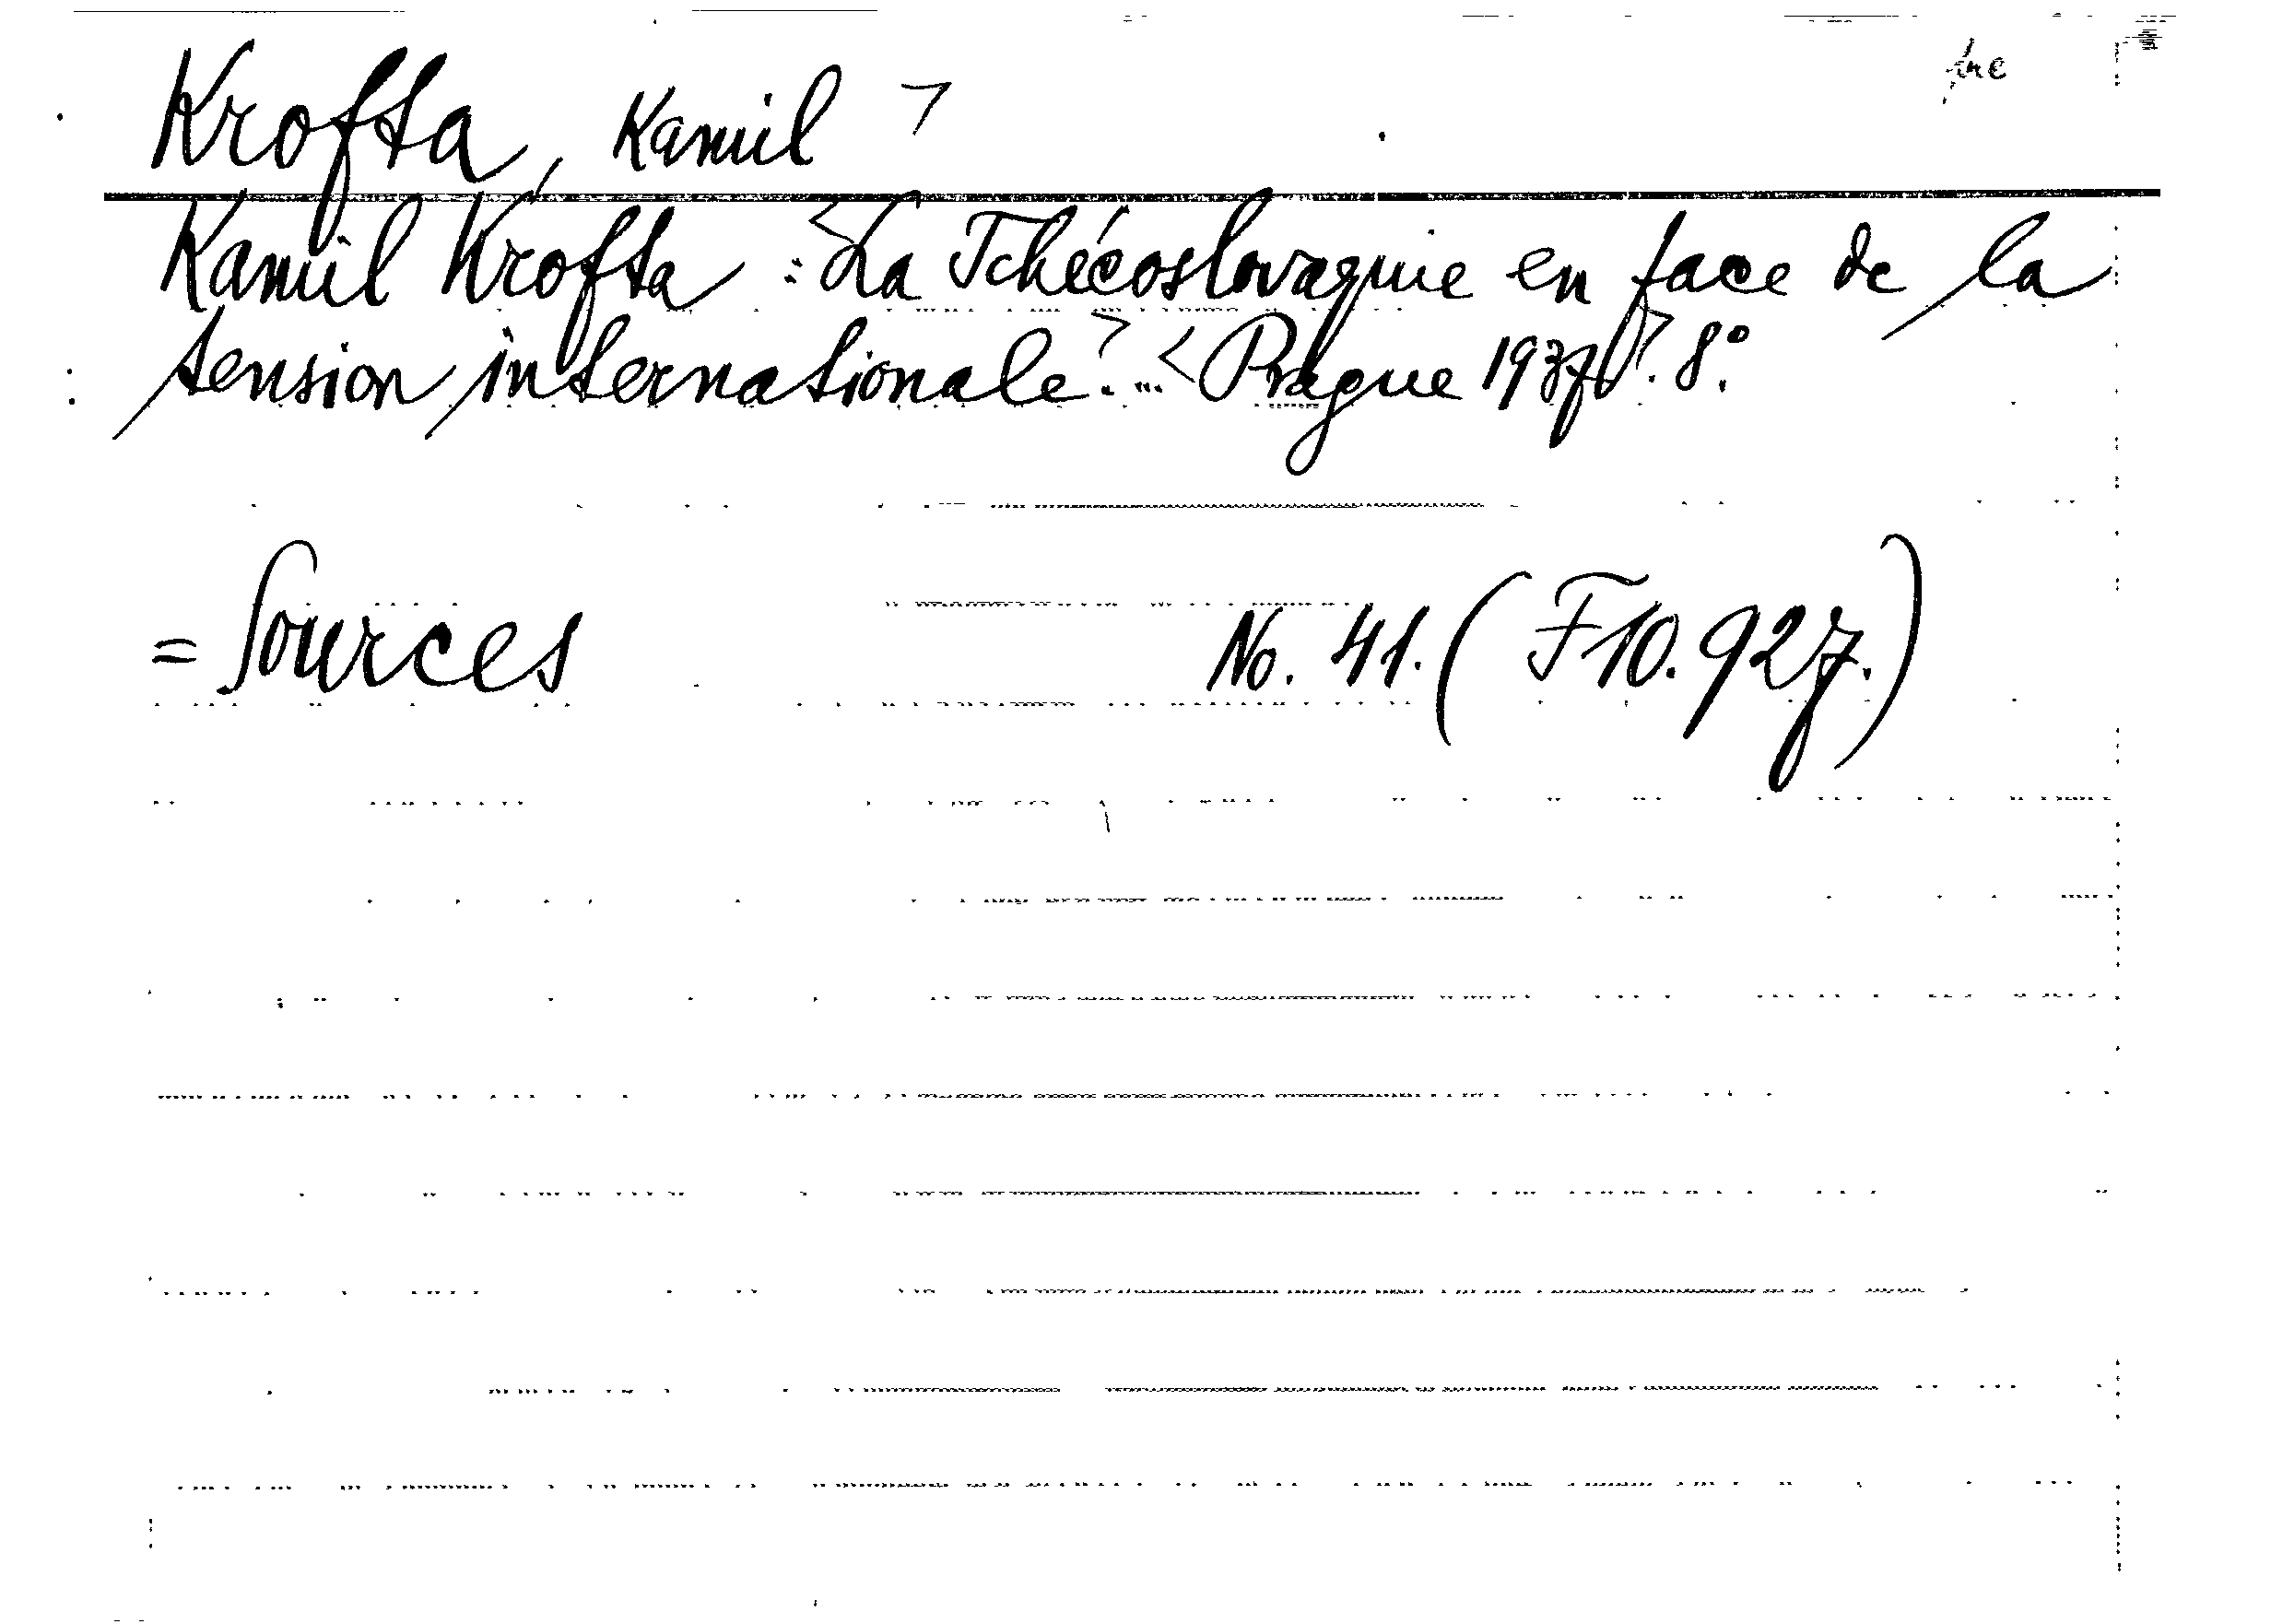 Krofta, Kamil >
Kamil Krofta : <La Tchécoslovaquie en face de la
tension internationale.> ... <Prague 1937>. 8°.
= Sources No. 41. (F10.927.)